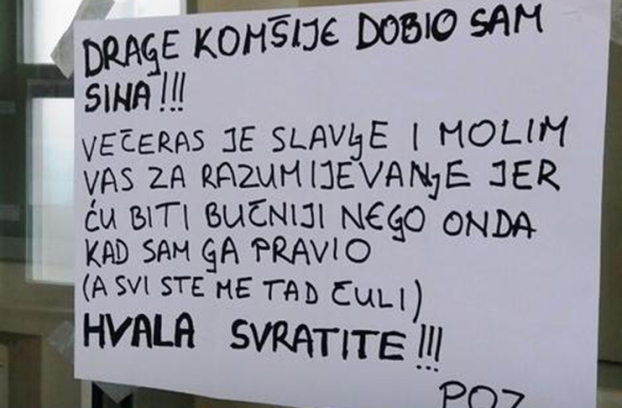 DRAGE KOMŠIJE DOBIO SAM
SINA!!!
VEČERAS JE SLAVljE I MOLIM
VAS ZA RAZUMIJEVANjE JER
ĆU BITI BUČNIJI NEGO ONDA
KAD SAM GA PRAVIO
(A SVI STE ME TAD ČULI)
HVALA SVRATITE!!!
POZ